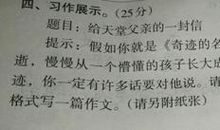 四、习作展示。(25分)
题目：给天堂父亲的一封信
提示：假如你就是《奇迹的名
逝，慢慢从一个懵懂的孩子长大成
迹，你一定有许多话要对他说。请
格式写一篇作文。(请另附纸张)